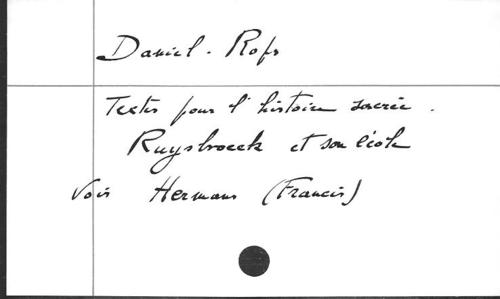 Daniel. Rops
Textes pour l'histoire sacrée.
Ruysbroeck et son école
Voir Hermans (Francis)